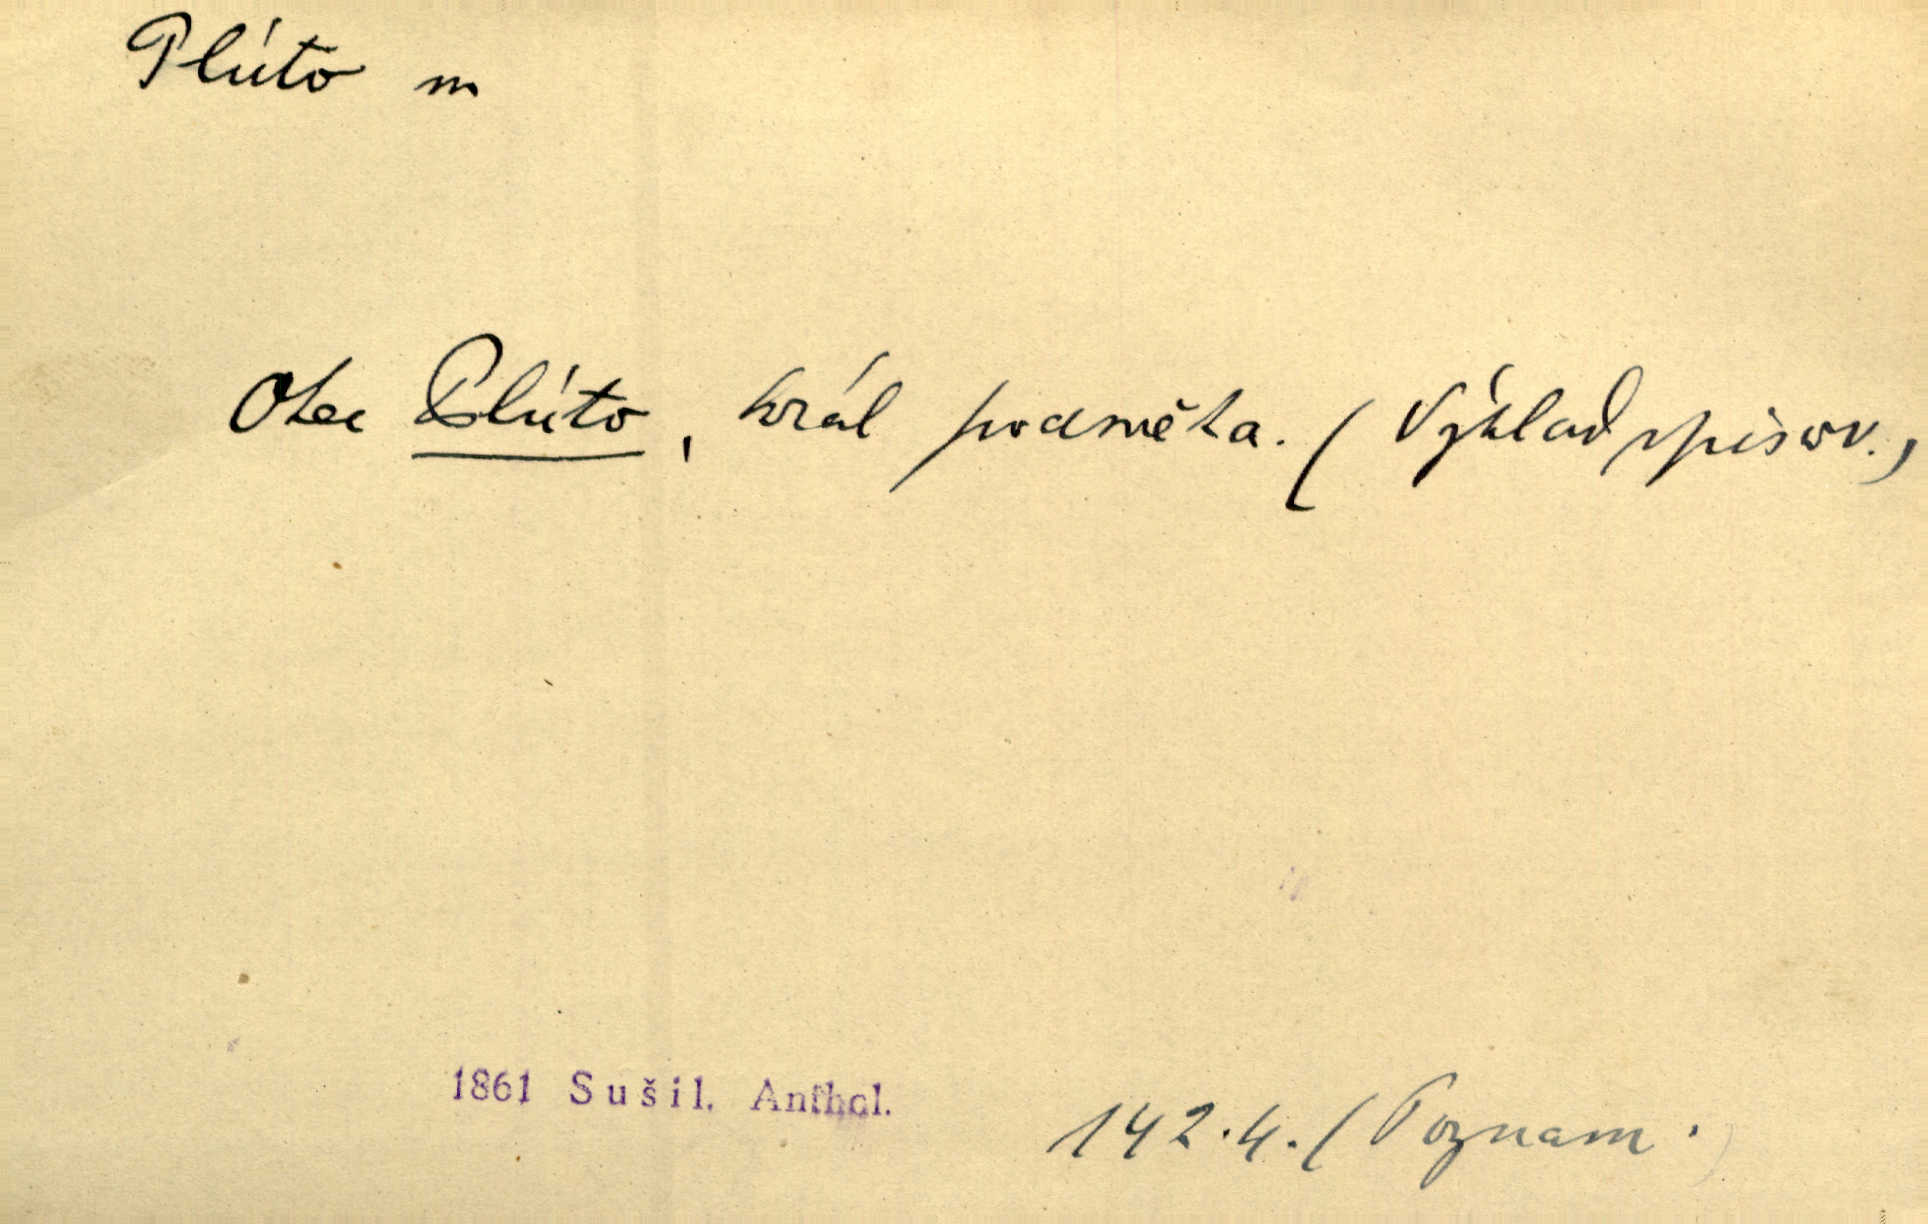 Plúto m
Otec Plúto, král podsvěta. (Výklad spisov.,
1861 Sušil. Anthol.
142.4. (Poznam.)